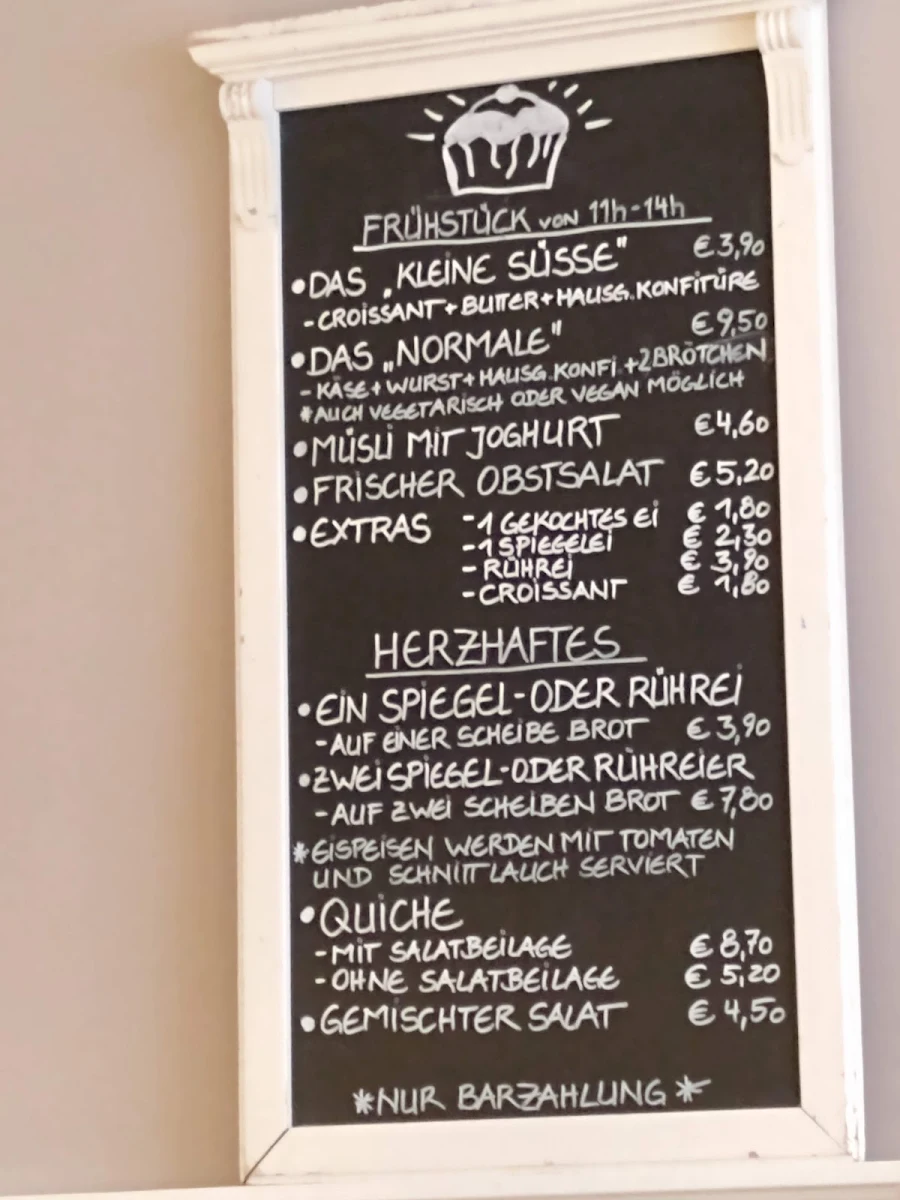 FRÜHSTÜCK VON 11h-14h
• DAS „KLEINE SÜSSE" € 3,90
- CROISSANT + BUTTER + HAUSG. KONFITÜRE
• DAS „NORMALE" € 9,50
- KÄSE + WURST + HAUSG. KONFI. + 2 BRÖTCHEN
* AUCH VEGETARISCH ODER VEGAN MÖGLICH
• MÜSLI MIT JOGHURT € 4,60
• FRISCHER OBSTSALAT € 5,20
• EXTRAS - 1 GEKOCHTES EI € 1,80
- 1 SPIEGELEI € 2,30
- RÜHREI € 3,90
- CROISSANT € 1,80
HERZHAFTES
• EIN SPIEGEL- ODER RÜHREI
- AUF EINER SCHEIBE BROT € 3,90
• ZWEI SPIEGEL- ODER RÜHREIER
- AUF ZWEI SCHEIBEN BROT € 7,80
* EISPEISEN WERDEN MIT TOMATEN
UND SCHNITTLAUCH SERVIERT
• QUICHE
- MIT SALATBEILAGE € 8,70
- OHNE SALATBEILAGE € 5,20
• GEMISCHTER SALAT € 4,50
* NUR BARZAHLUNG *